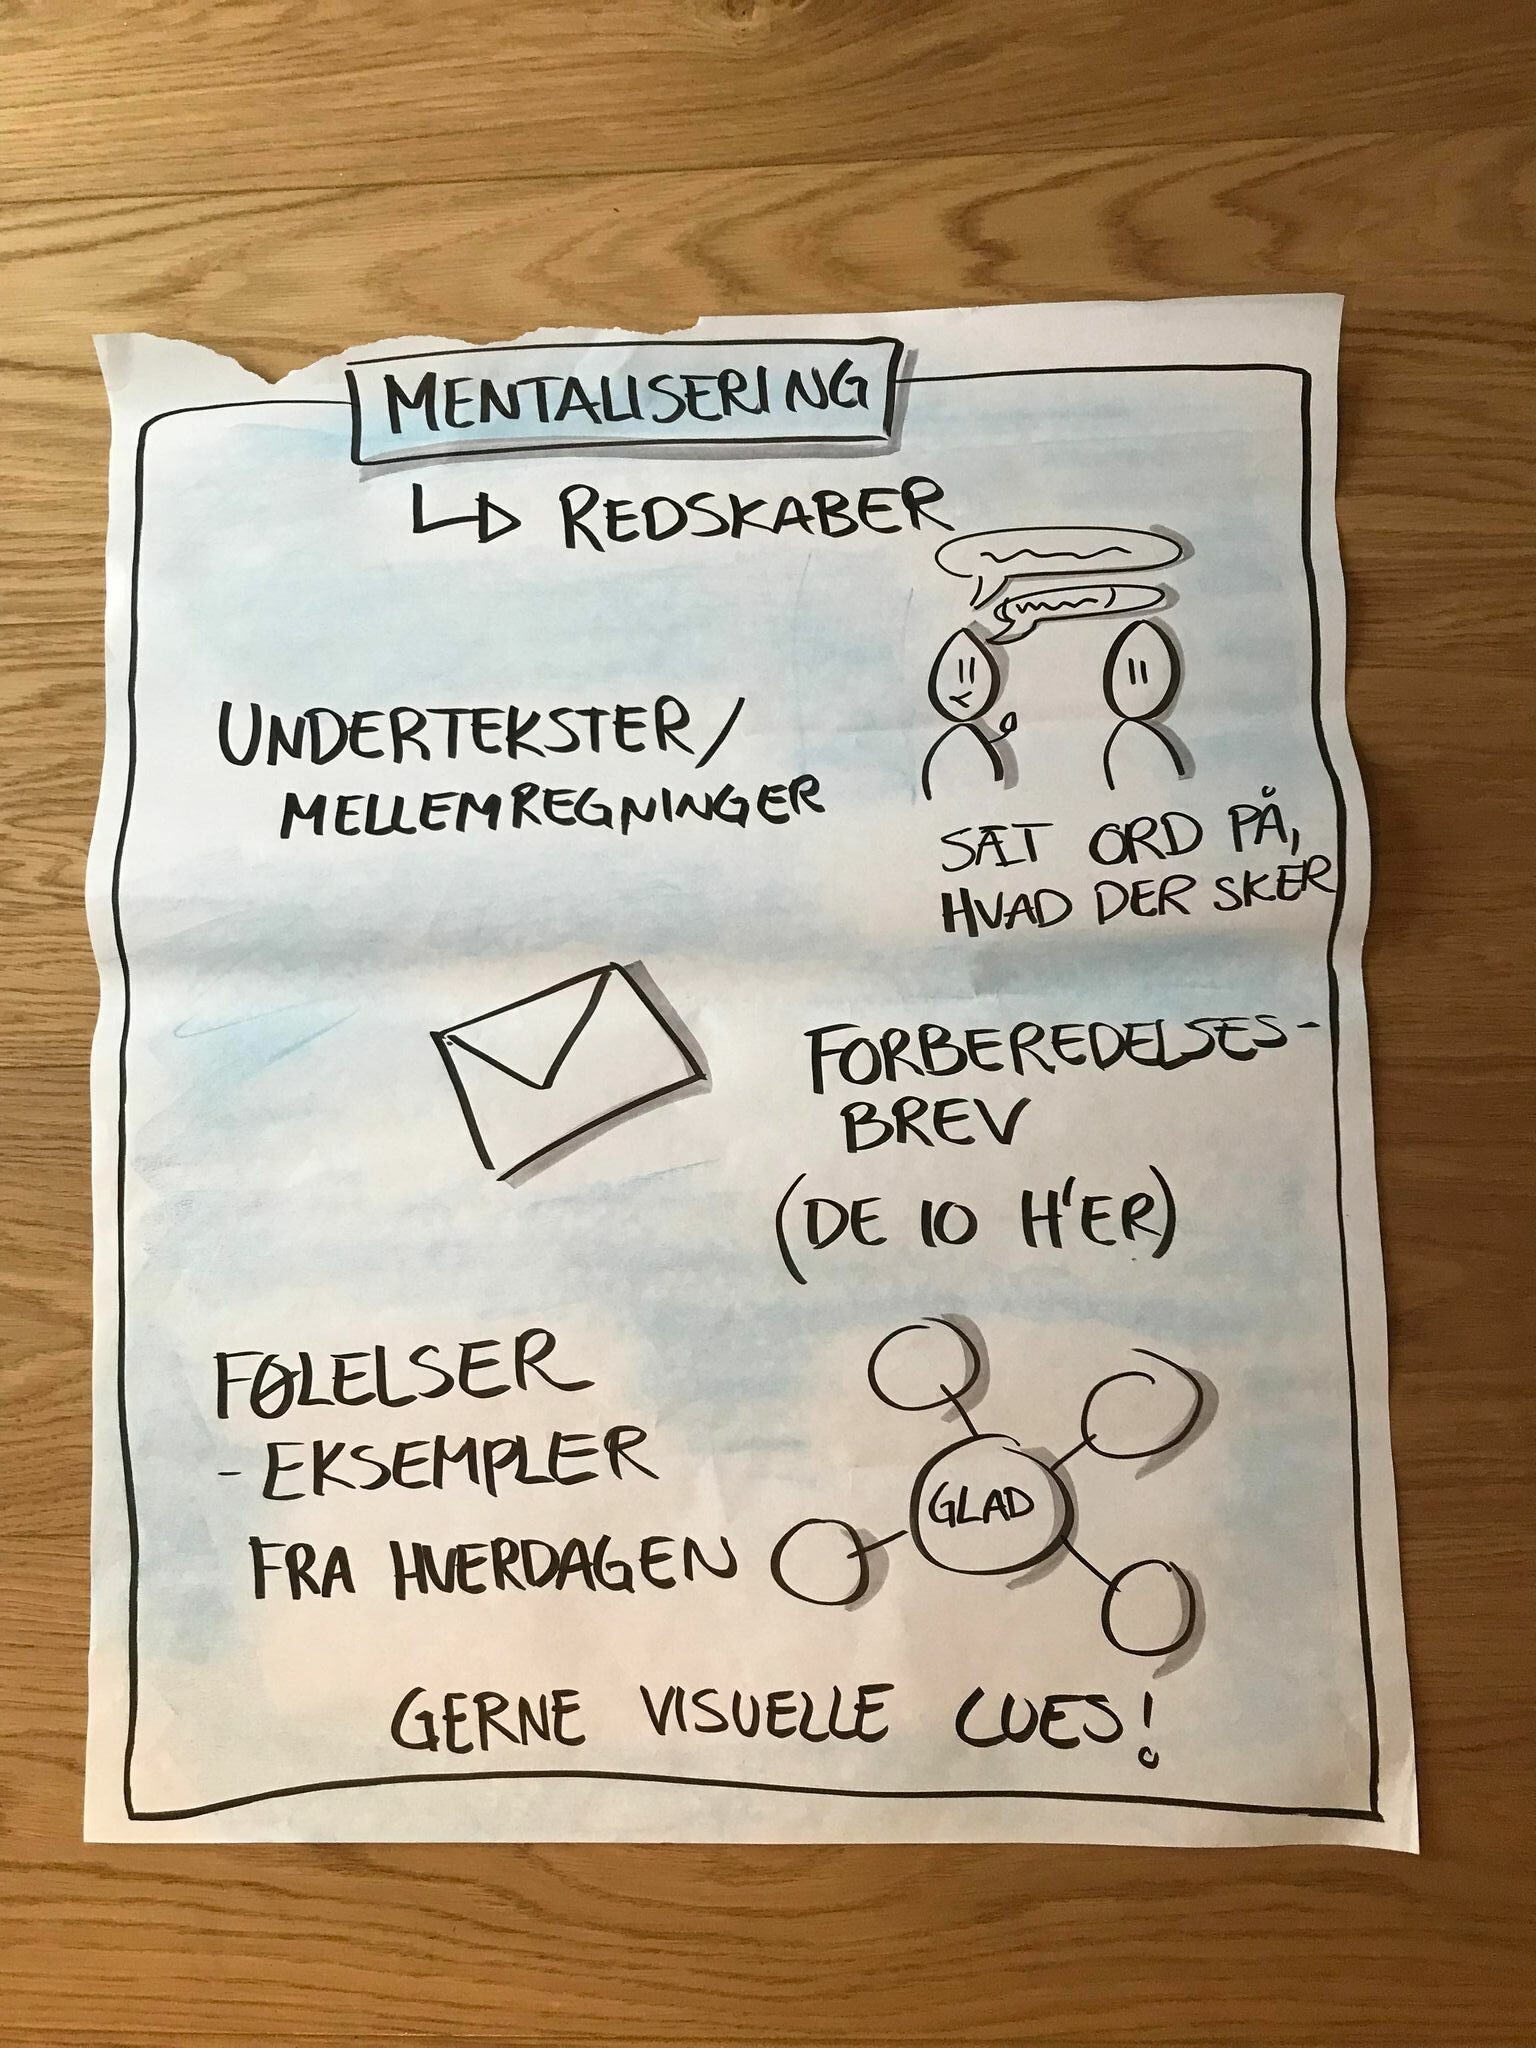 MENTALISERING
REDSKABER
UNDERTEKSTER/
MELLEMREGNINGER
SÆT ORD PÅ,
HVAD DER SKER
FORBEREDELSES-
BREV
(DE 10 H'ER)
FØLELSER
- EKSEMPLER
FRA HVERDAGEN
GLAD
GERNE VISUELLE CUES!